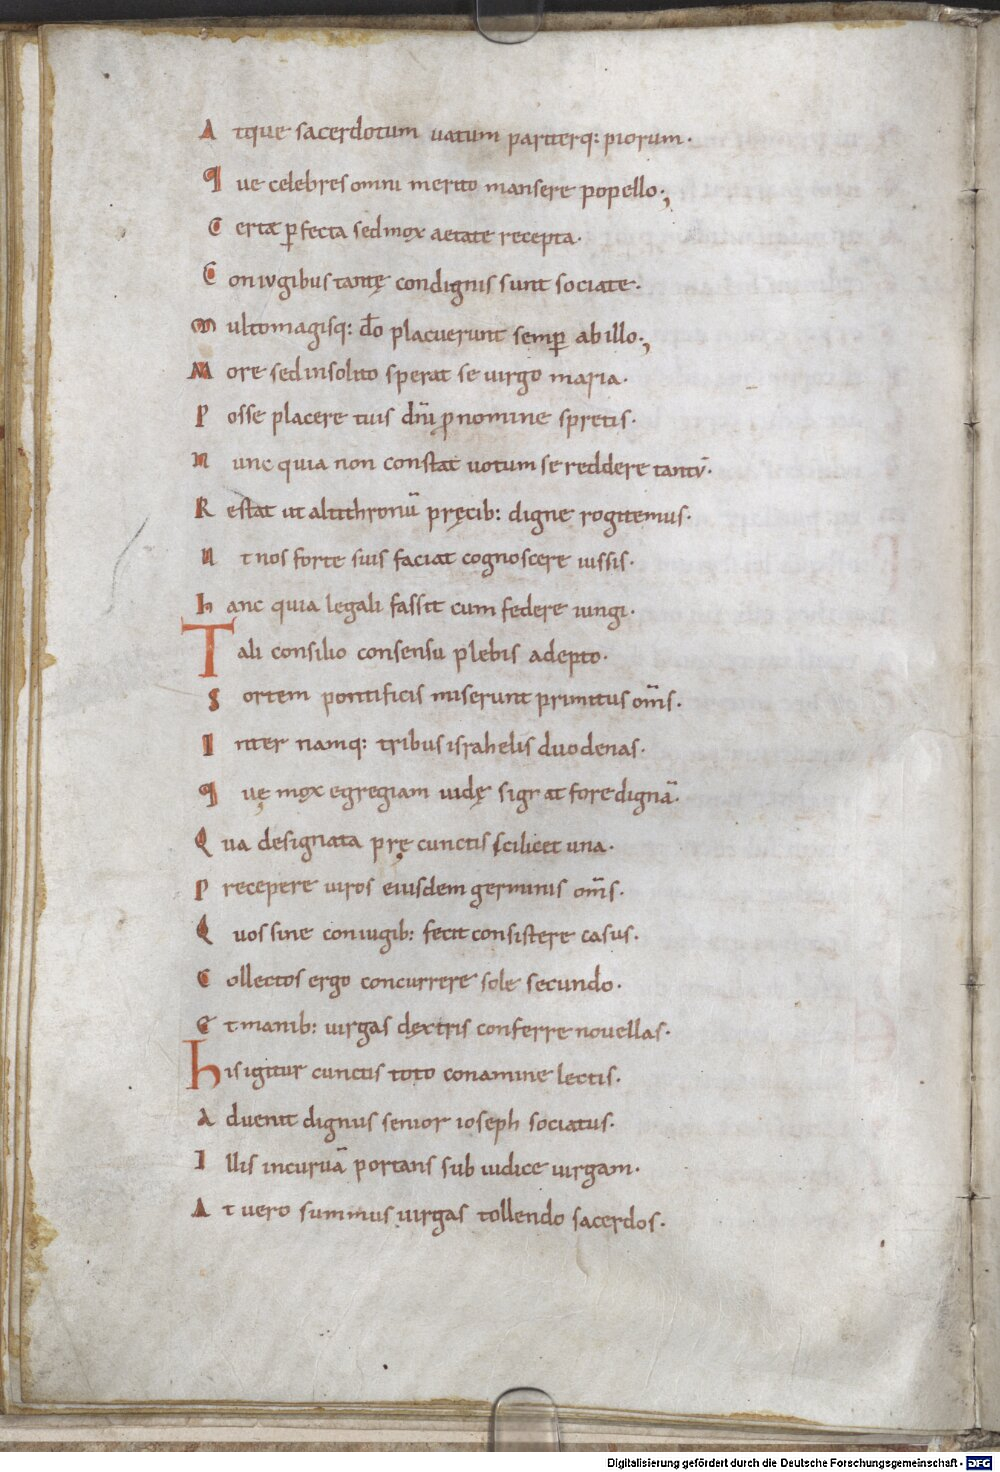 Atque sacerdotum uatum pariterq: piorum·
Que celebres omni merito mansere popello·,
Certæ p̱fecta sed mox aetate recepta·
Coniugibus tantę condignis sunt sociate·
Multo magisq: do̅ placuerunt semp̱ ab illo·,
More sed insolito sperat se uirgo maria·
Posse placere tuis dn̅i ꝓ nomine spretis·
Nunc quia non constat uotum se reddere tantu̅·
Restat ut altithronu̅ pręcib: digne rogitemus·
Ut nos forte suis faciat cognoscere iussis·
hanc quia legali fassit cum federe iungi·
Tali consilio consensu plebis adepto·
Sortem pontificis miserunt primitus om̅s·
Inter namq: tribus israhelis duodenas·
Quę mox egregiam iudę signat fore digna̅·
Qua designata prę cunctis scilicet una·
Precepere uiros eiusdem germinis om̅s·
Quos sine coniugib: fecit consistere casus·
Collectos ergo concurrere sole secundo·
Et manib: uirgas dęxtris conferre nouellas·
his igitur cunctis toto conamine lectis·
Aduenit dignus senior ioseph sociatus·
Illis incurua̅ portans sub iudice uirgam·
At uero summus uirgas tollendo sacerdos·
Digitalisierung gefördert durch die Deutsche Forschungsgemeinschaft - DFG